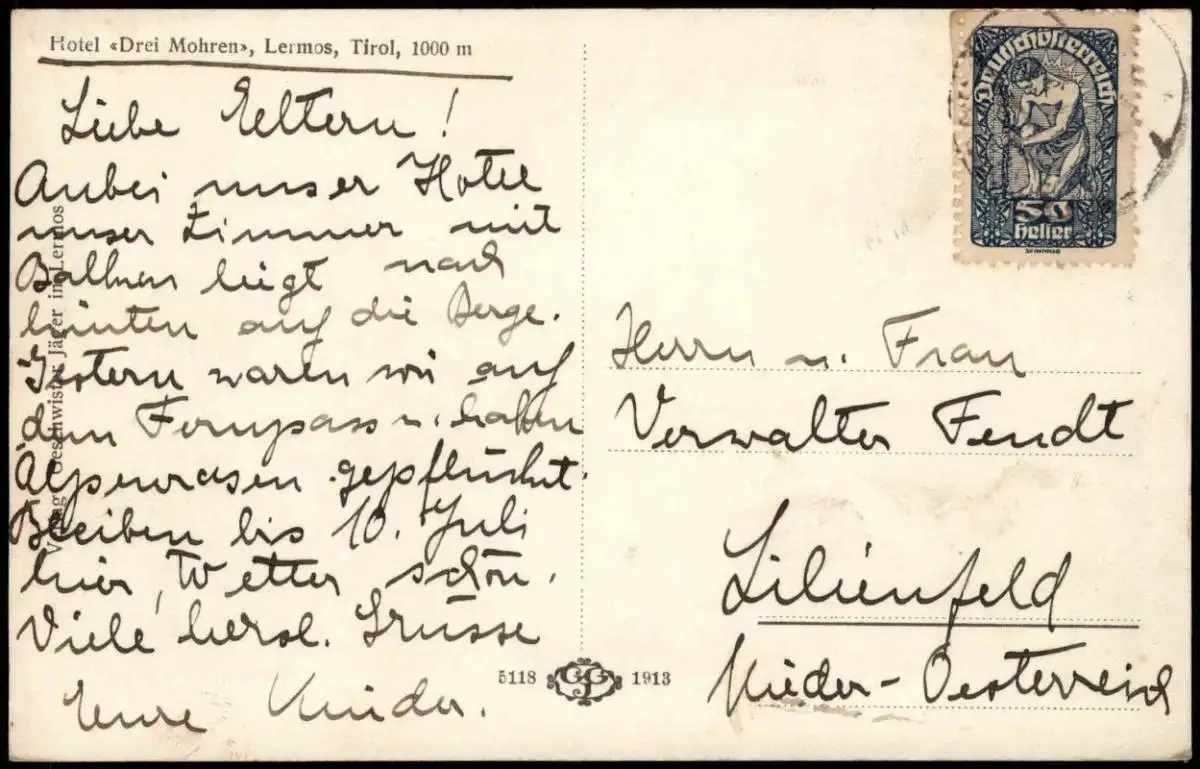 Hotel «Drei Mohren», Lermos, Tirol, 1000 m
Liebe Eltern!
Anbei unser Hotel
unser Zimmer mit
Balkon liegt nach
hinten auf die Berge.
Gestern waren wir auf
dem Fernpass u. haben
Alpenrosen gepflückt.
Bleiben bis 10. Juli
hier, Wetter schön.
Viele herzl. Grüsse
Eure Kinder.
Verlag Geschwister Jäger in Lermos
5118 1913
Deutschösterreich
50
Heller
Herrn u. Frau
Verwalter Fendt
Lilienfeld
Nieder-Oesterreich